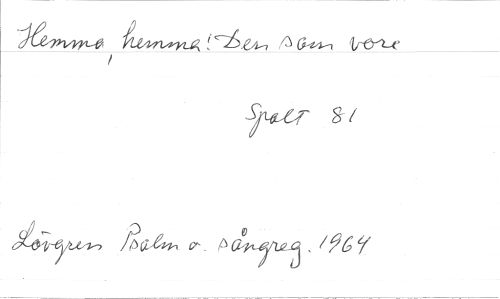 Hemma, hemma! Den som vore
Spalt 81
Lövgren Psalm o. sångreg. 1964